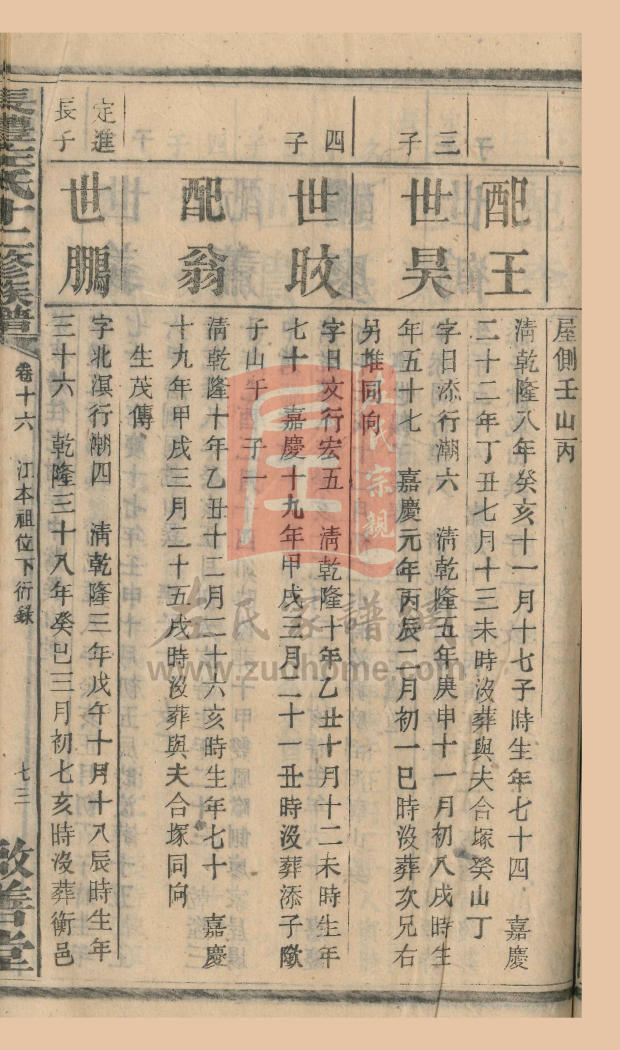 屋側壬山丙
配王
清乾隆八年癸亥十一月十七子時生年七十四 嘉慶
二十二年丁丑七月十三未時沒葬與夫合塚癸山丁
三子
世昊
字日添行潮六 清乾隆五年庚申十一月初八戌時生
年五十七 嘉慶元年丙辰二月初一巳時沒葬次兄右
另堆同向
四子
世旼
字日文行宏五 清乾隆十年乙丑十月十二未時生年
七十 嘉慶十九年甲戌三月二十一丑時沒葬添子墩
子山午 子一
配翁
清乾隆十年乙丑十二月二十六亥時生年七十 嘉慶
十九年甲戌三月二十五戌時沒葬與夫合塚同向
生茂傳
定進長子
世鵬
字北溟行潮四 清乾隆三年戊午十月十八辰時生年
三十六 乾隆三十八年癸巳三月初七亥時沒葬衡邑
氏十二修族譜
卷十六 江本祖位下衍錄
七三
啟善堂
氏宗親
氏家譜
www.zuohome.com